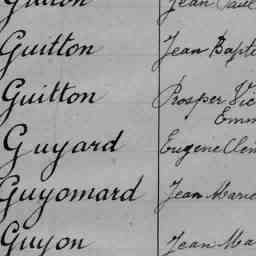 Guitton Jean Paul
Guitton Jean Bapti
Guitton Prosper Vic
Emm
Guyard Eugène Clém
Guyomard Jean Marie
Guyon Jean Ma